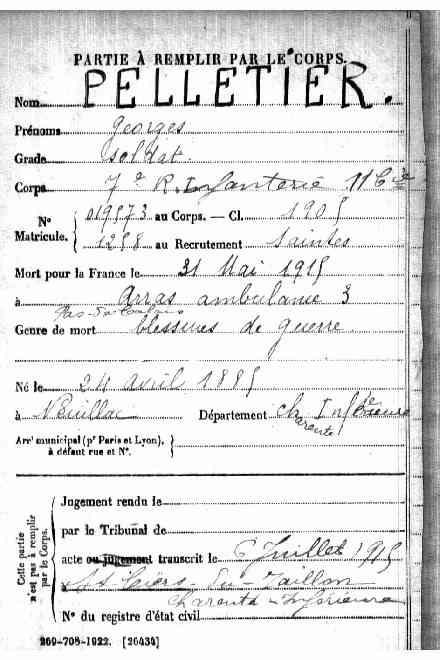 PARTIE À REMPLIR PAR LE CORPS.
Nom PELLETIER.
Prénoms Georges
Grade soldat.
Corps 7e R. Infanterie 11 Cie
N° Matricule. 019573 au Corps. — Cl. 1905
1298 au Recrutement Saintes
Mort pour la France le 31 Mai 1915
à Arras ambulance 3
Pas-de-Calais
Genre de mort blessures de guerre
Né le 24 avril 1885
à Neuillac Département Charente Inférieure
Arrt municipal (pr Paris et Lyon), à défaut rue et N°.
Cette partie n'est pas à remplir par le Corps.
Jugement rendu le
par le Tribunal de
acte ou jugement transcrit le 6 Juillet 1915
à St du Taillon
Charente-Inférieure
N° du registre d'état civil
269-708-1922. [26434]